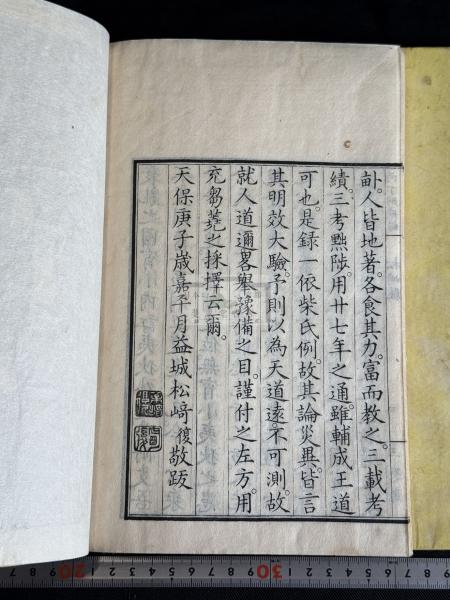 畝。人皆地著。各食其力。富而教之。三載考
績。三考黜陟。用廿七年之通。雖輔成王道
可也。是録一依柴氏例。故其論災異。皆言
其明效大驗。予則以為天道遠。不可測。故
就人道邇。畧舉豫備之目。謹付之左方。用
充芻蕘之採擇云爾。
天保庚子歲嘉平月益城松﨑復敬跋
20
30